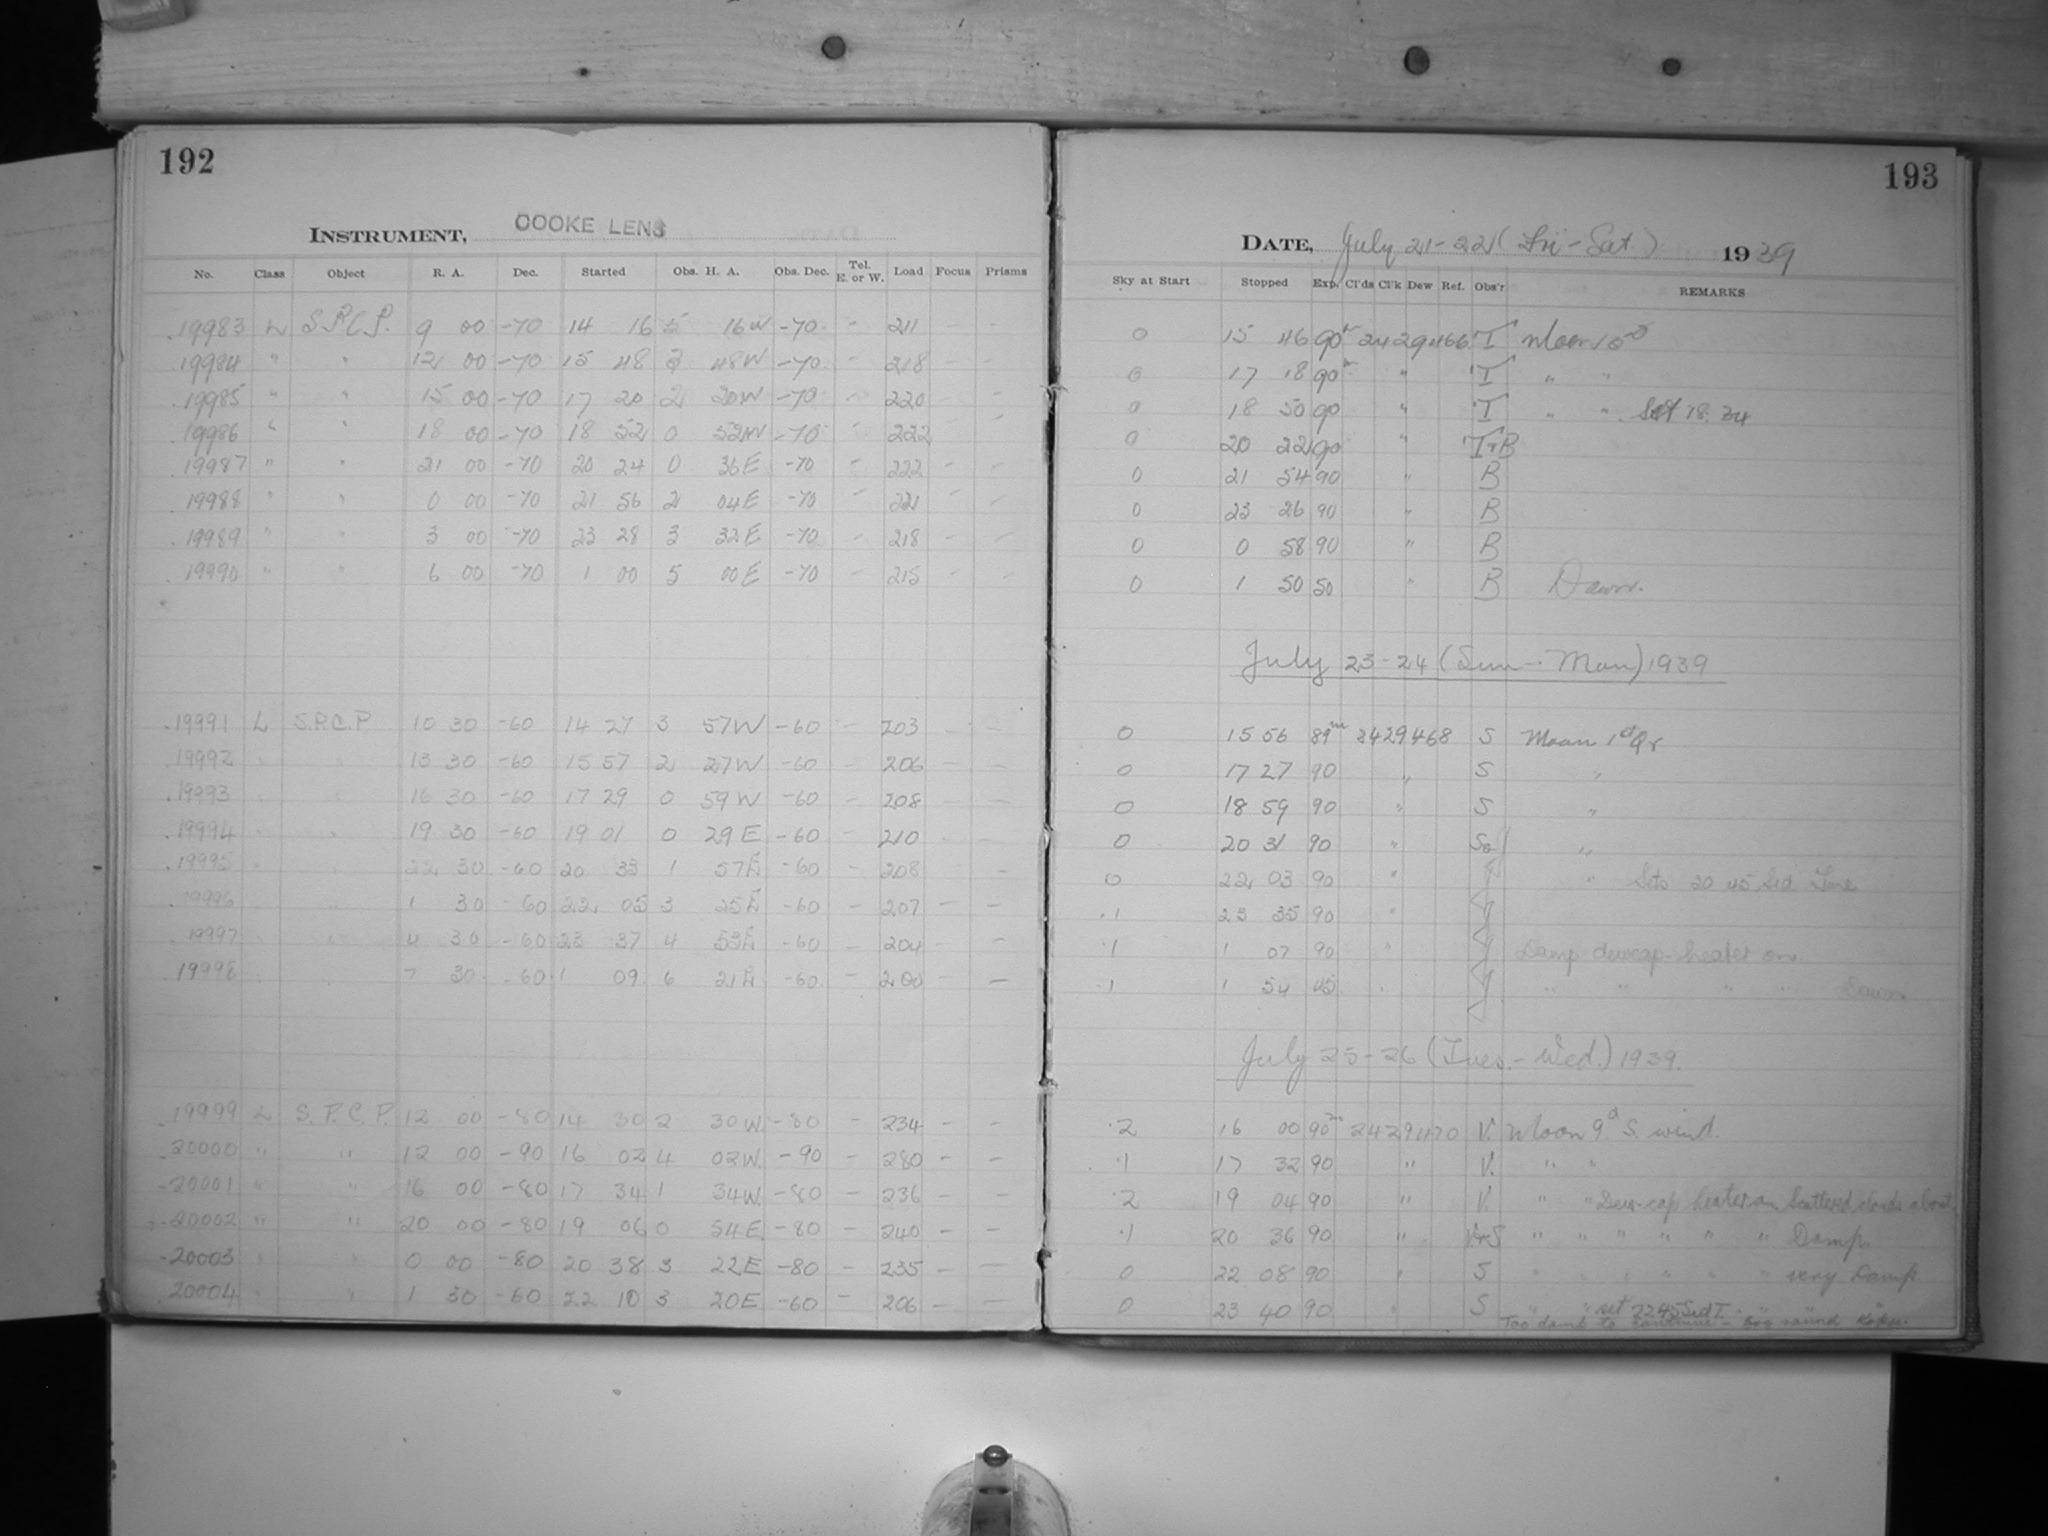 192
INSTRUMENT, COOKE LENS
No. Class Object R. A. Dec. Started Obs. H. A. Obs. Dec. Tel. E. or W. Load Focus Prisms
19983 L S.P.C.P. 9 00 -70 14 16 5 16W -70 - 211 - -
19984 " " 12 00 -70 15 48 3 48W -70 - 218 - -
19985 " " 15 00 -70 17 20 2 20W -70 - 220 - -
19986 " " 18 00 -70 18 52 0 52W -70 - 222 - -
19987 " " 21 00 -70 20 24 0 36E -70 - 222 - -
19988 " " 0 00 -70 21 56 2 04E -70 - 221 - -
19989 " " 3 00 -70 23 28 3 32E -70 - 218 - -
19990 " " 6 00 -70 1 00 5 00E -70 - 215 - -
19991 L S.P.C.P. 10 30 -60 14 27 3 57W -60 - 203 - -
19992 " " 13 30 -60 15 57 2 27W -60 - 206 - -
19993 " " 16 30 -60 17 29 0 59W -60 - 208 - -
19994 " " 19 30 -60 19 01 0 29E -60 - 210 - -
19995 " " 22 30 -60 20 33 1 57E -60 - 208 -
19996 " " 1 30 -60 22 05 3 25E -60 - 207 - -
19997 " " 4 30 -60 23 37 4 53E -60 - 204 - -
19998 " " 7 30 -60 1 09 6 21E -60 - 200 -
19999 L S.P.C.P. 12 00 -80 14 30 2 30W. -80 - 234 - -
20000 " " 12 00 -90 16 02 4 02W. -90 - 280 - -
20001 " " 16 00 -80 17 34 1 34W. -80 - 236 - -
20002 " " 20 00 -80 19 06 0 54E -80 - 240 - -
20003 " " 0 00 -80 20 38 3 22E -80 - 235 - -
20004 " " 1 30 -60 22 10 3 20E -60 - 206 - -
193
DATE, July 21-22 (Fri-Sat) 1939
Sky at Start Stopped Exp. Cl'ds Cl'k Dew Ref. Obs'r REMARKS
0 15 46 90m 2429466 T Moon
0 17 18 90m " T " "
0 18 50 90 " T " " Set 18.34
0 20 22 90 " T+B
0 21 54 90 " B
0 23 26 90 " B
0 0 58 90 " B
0 1 50 50 " B Dawn.
July 23-24 (Sun-Mon) 1939
0 15 56 89m 2429468 S Moon 1st Qr
0 17 27 90 " S "
0 18 59 90 " S "
0 20 31 90 " "
0 22 03 90 " " Sets 20 45 Sid Time
.1 23 35 90 "
.1 1 07 90 " Damp dewcap heater on
.1 1 54 45 " " " " " Dawn
July 25-26 (Tues.-Wed.) 1939.
.2 16 00 90m 2429470 V. Moon 9d S. wind.
.1 17 32 90 " V. " "
.2 19 04 90 " V. " " Dew-cap heater on Scattered clouds about
.1 20 36 90 " V+S " " " " " " Damp.
0 22 08 90 " S " " " " " " very Damp
0 23 40 90 " S " " set 2245 Sid T. " "
Too damp to continue - fog round Kopje.